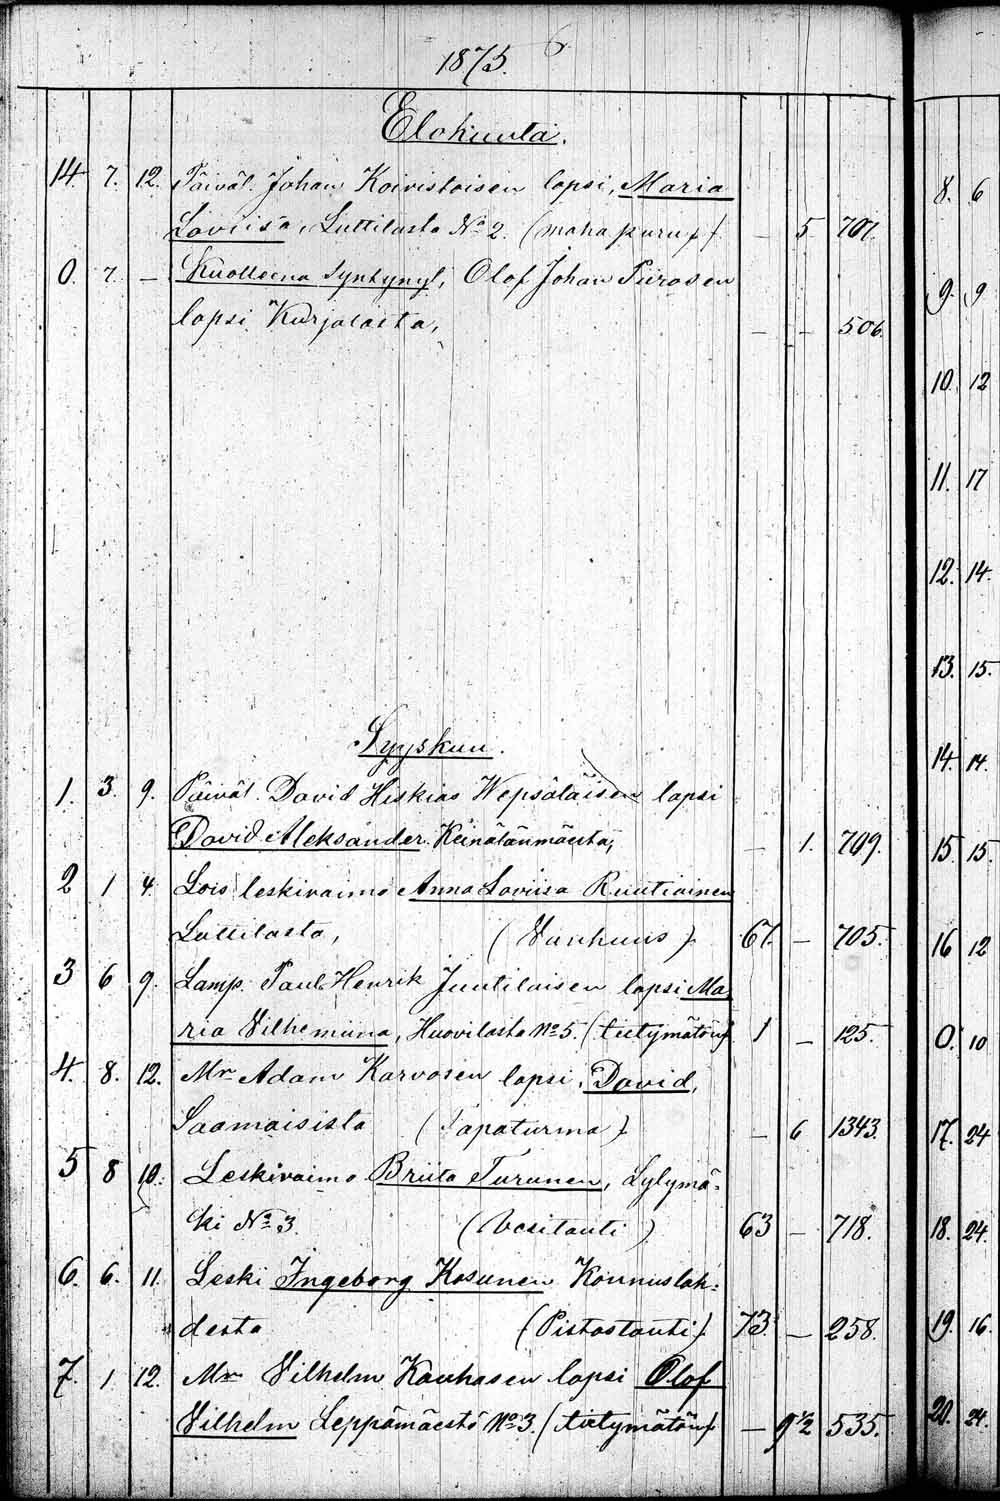 1875. 6
Elokuulta.
14. 7. 12. Päiväl. Johan Koivistoisen lapsi, Maria
Loviisa, Luttilasta No 2. (mahapuru) — 5 707.
0. 7. — Kuolleena syntynyt, Olof Johan Piirosen
lapsi Kurjalasta, — — 506.
Syyskuu.
1. 3. 9. Päiväl. David Heskias Wepsäläisen lapsi
David Aleksander. Keinälänmäestä, — 1. 709.
2 1 4. Lois leskivaimo Anna Loviisa Ruutiainen
Luttilasta, (Vanhuus) 67. — 705.
3 6 9. Lamp. Paul Henrik Juutilaisen lapsi Ma
ria Vilhemiina, Huovilasta No 5. (tietymätöin) 1 — 125.
4. 8. 12. Mr Adam Karvosen lapsi, David,
Saamaisista (Tapaturma) — 6 1343.
5 8 10. Leskivaimo Briita Turunen, Lylymä-
ki No 3. (Vesitauti) 63 — 718.
6. 6. 11. Leski Ingeborg Kosunen Konnuslah-
desta (Pistostauti) 73 — 258.
7. 1 12. Mr Vilhelm Kauhasen lapsi Olof
Vilhelm Leppämäestä No 3. (tietymätöin) — 9 1/2 535.
8. 6
9. 9
10. 12
11. 17
12. 14.
13. 15.
14. 14.
15. 15.
16 12
0. 10
17. 24
18. 24.
19. 16.
20. 24.